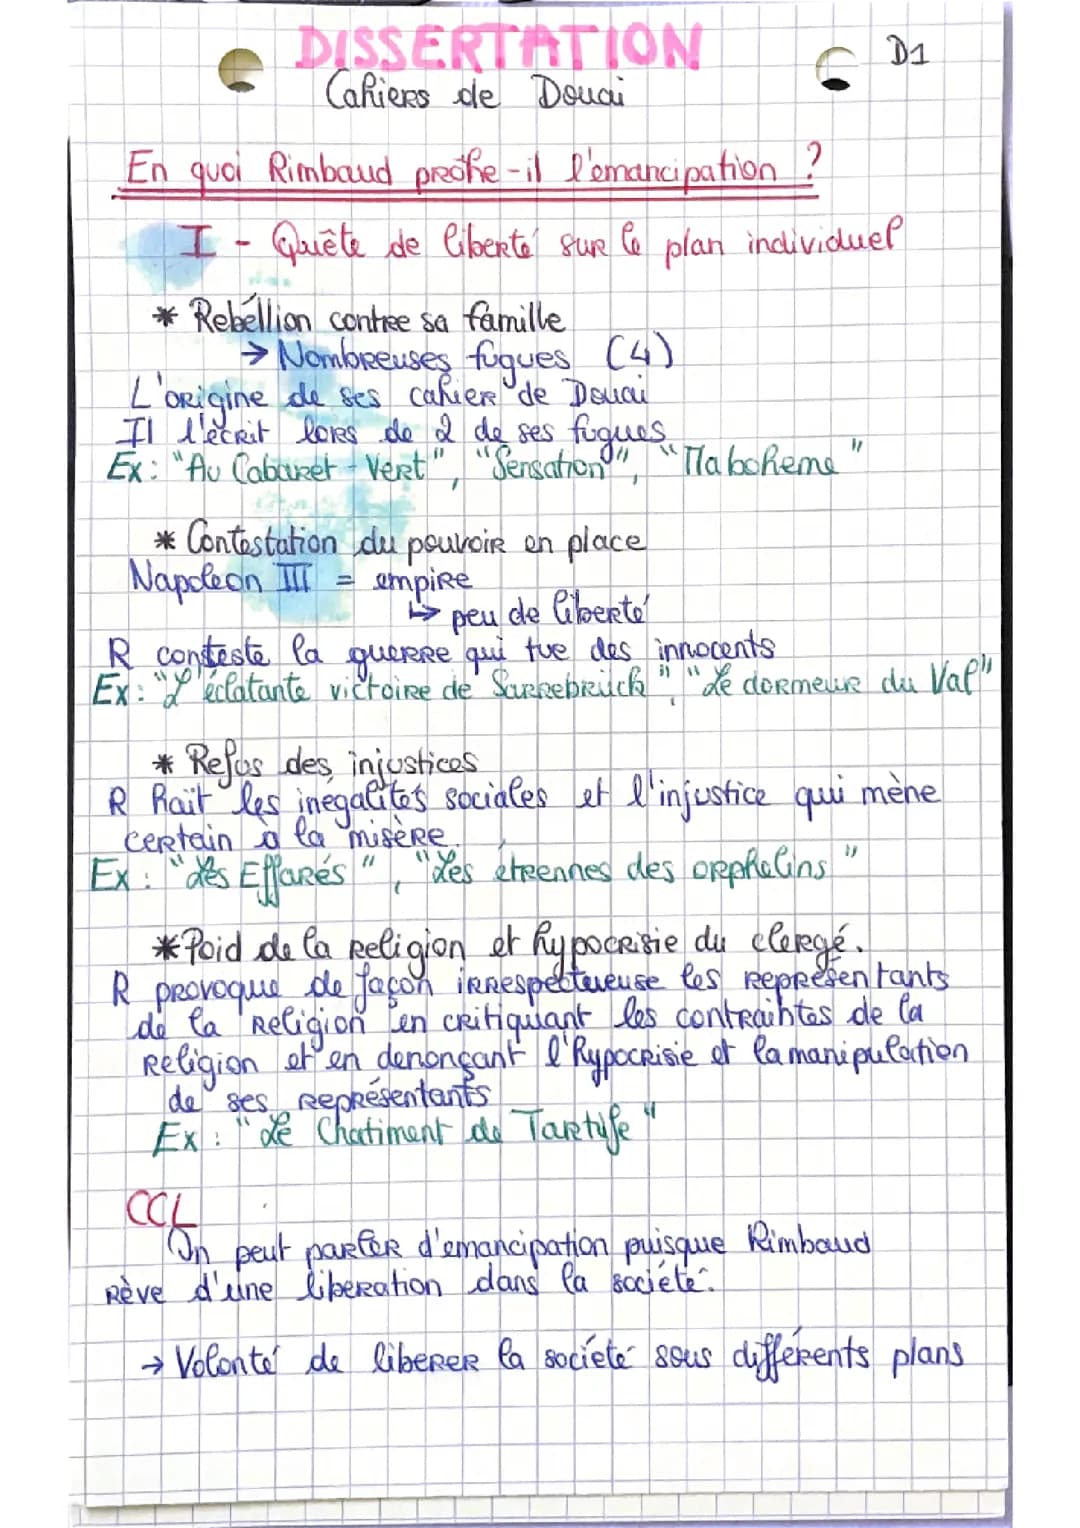 DISSERTATION
D1
Cahiers de Douai
En quoi Rimbaud prône-il l'emancipation ?
I - Quête de liberté sur le plan individuel
* Rebéllion contre sa famille
→ Nombreuses fugues (4)
L'origine de ses cahier de Douai
Il l'écrit lors de 2 de ses fugues
Ex : "Au Cabaret-Vert", "Sensation", "Ma boheme"
* Contestation du pouvoir en place
Napoleon III = empire
↳ peu de liberté
R conteste la guerre qui tue des innocents
Ex : "L'éclatante victoire de Sarrebrück", "Le dormeur du Val"
* Refus des injustices
R haït les inégalités sociales et l'injustice qui mène
certain à la misère.
Ex : "Les Effarés", "Les étrennes des orphelins"
* Poid de la religion et hypocrisie du clergé.
R provoque de façon irrespectueuse les représentants
de la religion en critiquant les contraintes de la
religion et en denonçant l'hypocrisie et la manipulation
de ses représentants
Ex : "Le Chatiment de Tartufe"
CCL
On peut parler d'emancipation puisque Rimbaud
rève d'une liberation dans la société.
→ Volonté de liberer la société sous différents plans